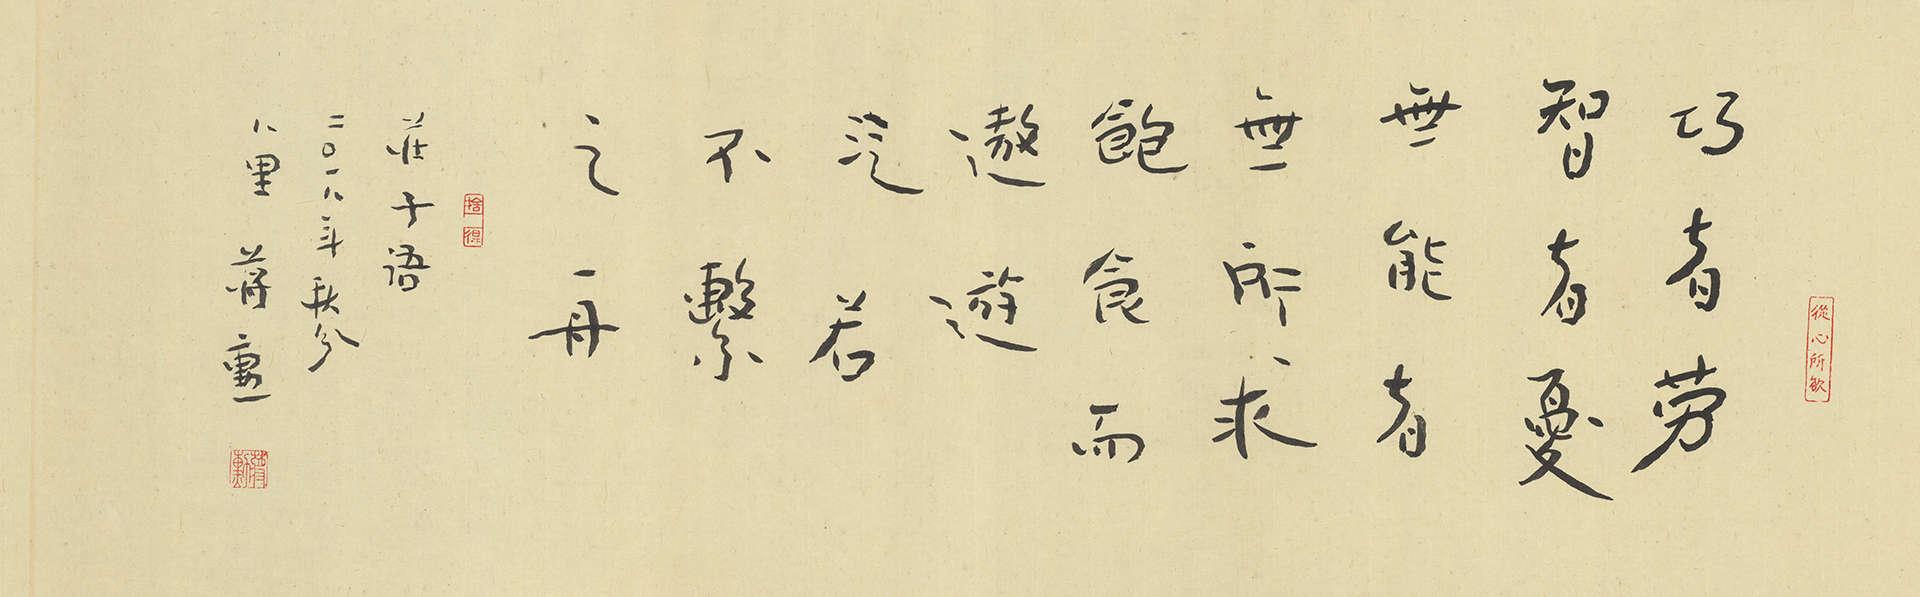 從心所欲
巧者劳
智者憂
無能者
無所求
飽食而
遨遊
汎若
不繫
之舟
捨得
莊子语
二〇一八年秋分
八里 蒋勳
蔣勳